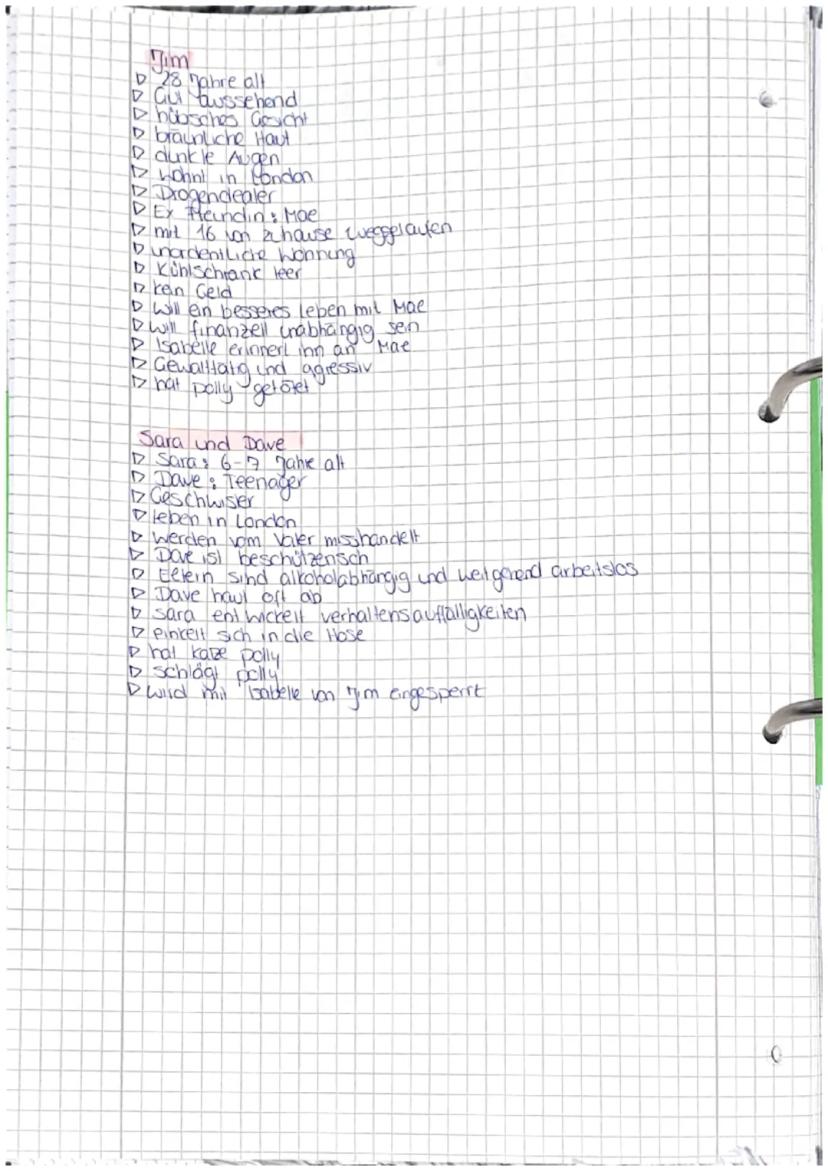 Jim
▷ 28 Jahre alt
▷ Gut aussehend
▷ hübsches Gesicht
▷ bräunliche Haut
▷ dunkle Augen
▷ wohnt in London
▷ Drogendealer
▷ Ex Freundin: Mae
▷ mit 16 von zuhause weggelaufen
▷ unordentliche Wohnung
▷ Kühlschrank leer
▷ kein Geld
▷ will ein besseres leben mit Mae
▷ will finanzell unabhängig sein
▷ Isabelle erinnert ihn an Mae
▷ Gewalttätig und agressiv
▷ hat polly getötet
Sara und Dave
▷ Sara: 6-7 Jahre alt
▷ Dave: Teenager
▷ Geschwister
▷ leben in London
▷ werden vom Vater misshandelt
▷ Dave ist beschützensch
▷ Eelein sind alkoholabhängig und weitgehend arbeitslos
▷ Dave haut oft ab
▷ Sara entwickelt verhaltensauffälligkeiten
▷ pinkelt sich in die Hose
▷ hat kaze polly
▷ schlägt polly
▷ wird mit Isabelle von Jim eingesperrt